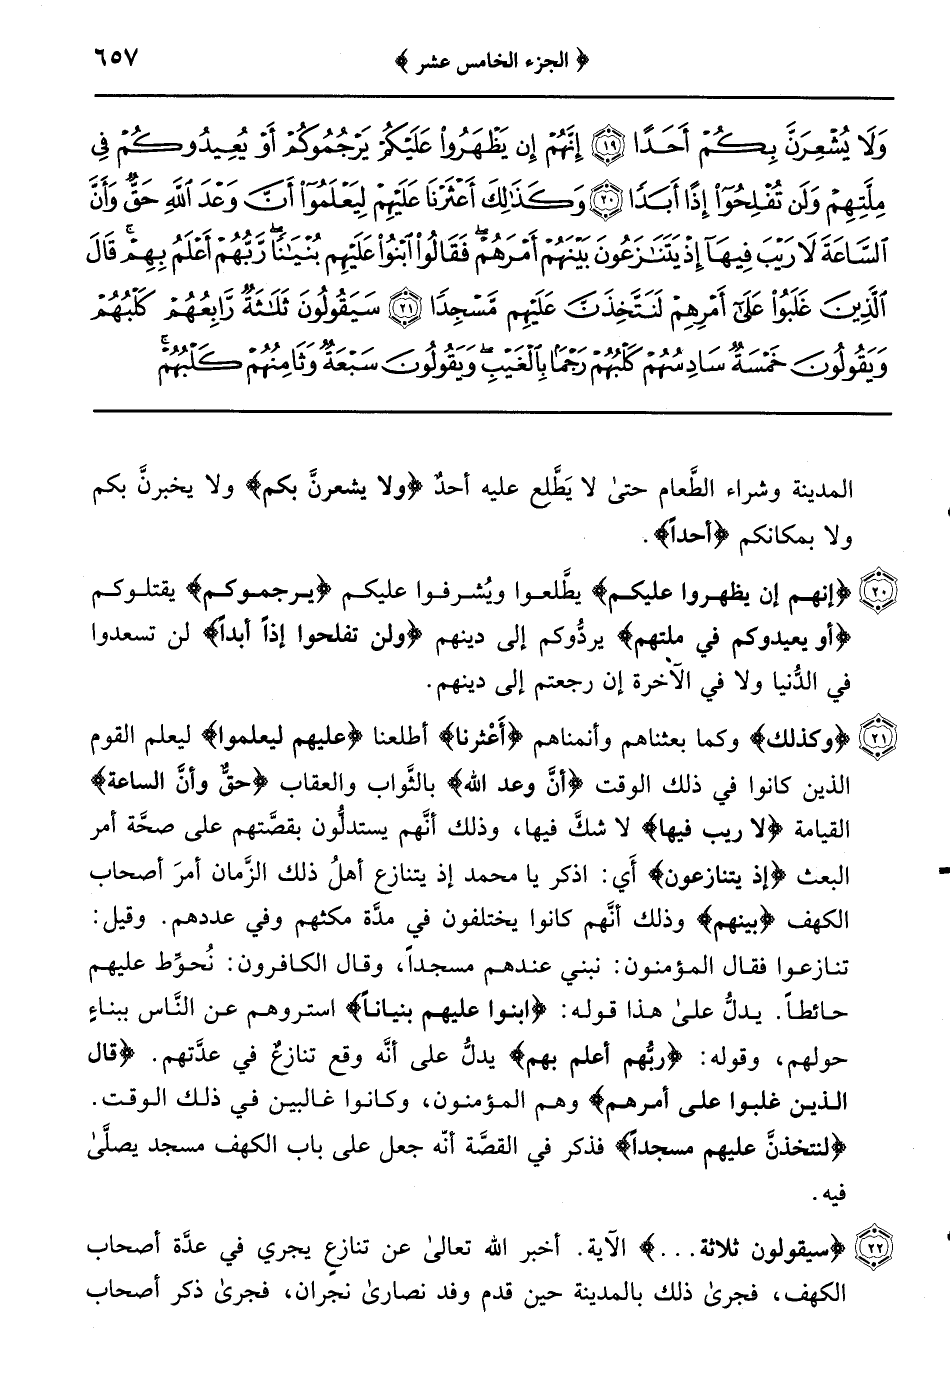 ﴿ الجزء الخامس عشر ﴾ ٦٥٧
وَلَا يُشْعِرَنَّ بِكُمْ أَحَدًا ١٩ إِنَّهُمْ إِن يَظْهَرُوا۟ عَلَيْكُمْ يَرْجُمُوكُمْ أَوْ يُعِيدُوكُمْ فِى
مِلَّتِهِمْ وَلَن تُفْلِحُوٓا۟ إِذًا أَبَدًا ٢٠ وَكَذَٰلِكَ أَعْثَرْنَا عَلَيْهِمْ لِيَعْلَمُوٓا۟ أَنَّ وَعْدَ ٱللَّهِ حَقٌّ وَأَنَّ
ٱلسَّاعَةَ لَا رَيْبَ فِيهَآ إِذْ يَتَنَٰزَعُونَ بَيْنَهُمْ أَمْرَهُمْ ۖ فَقَالُوا۟ ٱبْنُوا۟ عَلَيْهِم بُنْيَٰنًا ۖ رَّبُّهُمْ أَعْلَمُ بِهِمْ ۚ قَالَ
ٱلَّذِينَ غَلَبُوا۟ عَلَىٰٓ أَمْرِهِمْ لَنَتَّخِذَنَّ عَلَيْهِم مَّسْجِدًا ٢١ سَيَقُولُونَ ثَلَٰثَةٌ رَّابِعُهُمْ كَلْبُهُمْ
وَيَقُولُونَ خَمْسَةٌ سَادِسُهُمْ كَلْبُهُمْ رَجْمًۢا بِٱلْغَيْبِ ۖ وَيَقُولُونَ سَبْعَةٌ وَثَامِنُهُمْ كَلْبُهُمْ ۚ
المدينة وشراء الطَّعام حتىٰ لا يَطَّلع عليه أحدٌ ﴿ولا يشعرنَّ بكم﴾ ولا يخبرنَّ بكم
ولا بمكانكم ﴿أحداً﴾.
٢٠ ﴿إنهم إن يظهروا عليكم﴾ يطَّلعوا ويُشرفوا عليكم ﴿يرجموكم﴾ يقتلوكم
﴿أو يعيدوكم في ملتهم﴾ يردُّوكم إلى دينهم ﴿ولن تفلحوا إذاً أبداً﴾ لن تسعدوا
في الدُّنيا ولا في الآخرة إن رجعتم إلى دينهم.
٢١ ﴿وكذلك﴾ وكما بعثناهم وأنمناهم ﴿أَعْثرنا﴾ أطلعنا ﴿عليهم ليعلموا﴾ ليعلم القوم
الذين كانوا في ذلك الوقت ﴿أنَّ وعد الله﴾ بالثَّواب والعقاب ﴿حقٌّ وأنَّ الساعة﴾
القيامة ﴿لا ريب فيها﴾ لا شكَّ فيها، وذلك أنَّهم يستدلُّون بقصَّتهم على صحَّة أمر
البعث ﴿إذ يتنازعون﴾ أَي: اذكر يا محمد إذ يتنازع أهلُ ذلك الزَّمان أمرَ أصحاب
الكهف ﴿بينهم﴾ وذلك أنَّهم كانوا يختلفون في مدَّة مكثهم وفي عددهم. وقيل:
تنازعوا فقال المؤمنون: نبني عندهم مسجداً، وقال الكافرون: نُحوِّط عليهم
حائطاً. يدلُّ علىٰ هذا قوله: ﴿ابنوا عليهم بنياناً﴾ استروهم عن النَّاس ببناءٍ
حولهم، وقوله: ﴿ربُّهم أعلم بهم﴾ يدلُّ على أنَّه وقع تنازعٌ في عدَّتهم. ﴿قال
الذين غلبوا على أمرهم﴾ وهم المؤمنون، وكانوا غالبين في ذلك الوقت.
﴿لنتخذنَّ عليهم مسجداً﴾ فذكر في القصَّة أنّه جعل على باب الكهف مسجد يصلَّىٰ
فيه.
٢٢ ﴿سيقولون ثلاثة...﴾ الآية. أخبر الله تعالىٰ عن تنازعٍ يجري في عدَّة أصحاب
الكهف، فجرىٰ ذلك بالمدينة حين قدم وفد نصارىٰ نجران، فجرىٰ ذكر أصحاب